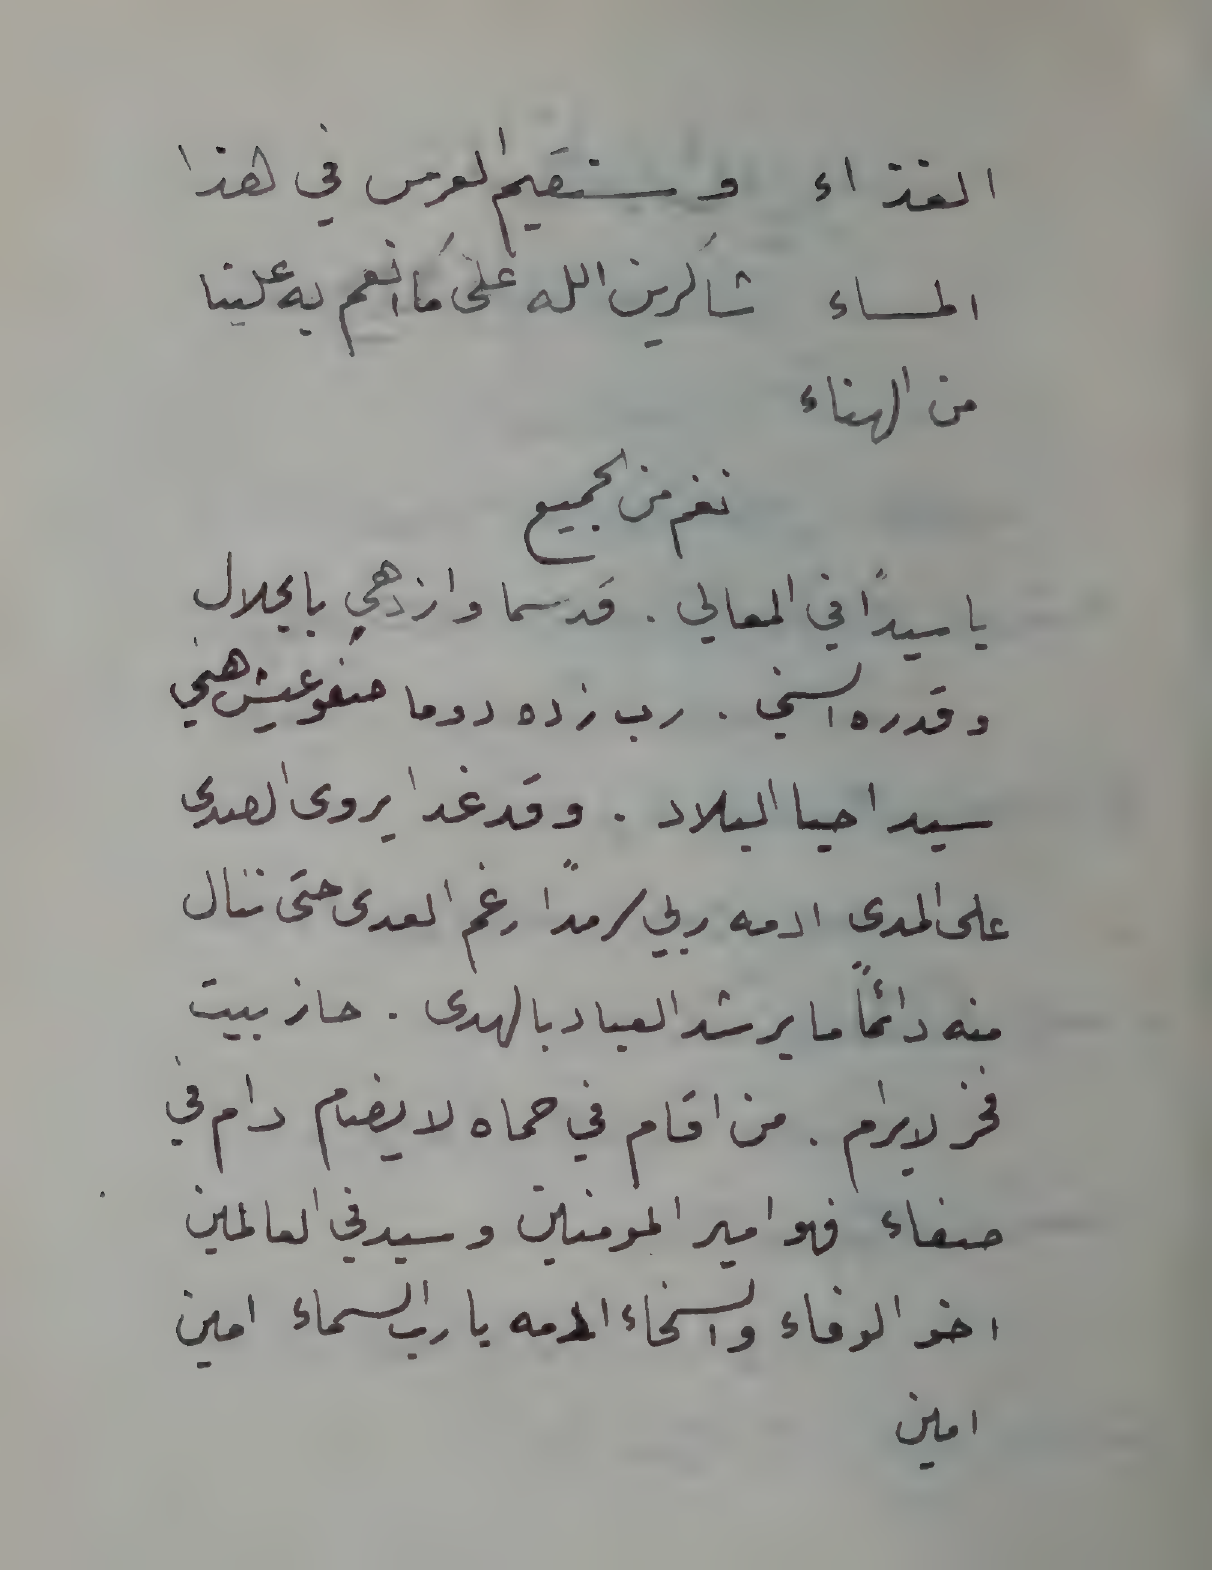 الغذاء وسنقيم العرس في هذا
المساء شاكرين الله على ما انعم به علينا
من الهناء
نغم من الجميع
يا سيدًا في المعالي . قد سما وازدهى بالجلال
وقدره السني . رب زده دوما صفو عيش هني
سيد احيا البلاد . وقد غدا يروى الصدى
على المدى ادمه ربي سرمدًا رغم العدى حتى ننال
منه دائمًا ما يرشد العباد بالهدى . حاز بيت
فخر لا يرام . من اقام في حماه لا يضام دام في
صفاء فهو امير المومنين وسيد في العالمين
اخو الوفاء والسخاء ادمه يا رب السماء امين
امين